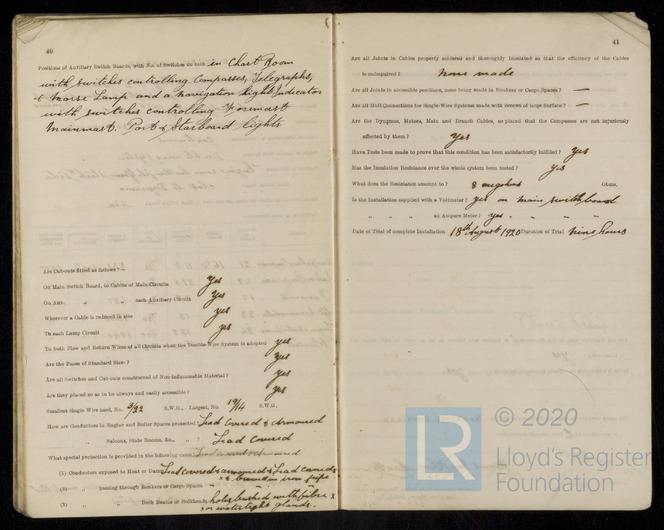 40
Positions of Auxiliary Switch Boards, with No. of Switches on each in Chart Room
with switches controlling Compasses, Telegraphs,
& Morse Lamp and a navigation light Indicator
with switches controlling Foremast
Mainmast. Port & Starboard lights
Are Cut-outs fitted as follows?—
On Main Switch Board, to Cables of Main Circuits Yes
On Aux. " " each Auxiliary Circuit Yes
Wherever a Cable is reduced in size yes
To each Lamp Circuit yes
To both Flow and Return Wires of all Circuits when the Double-Wire System is adopted yes
Are the Fuses of Standard Sizes? yes
Are all Switches and Cut-outs constructed of Non-inflammable Material? yes
Are they placed so as to be always and easily accessible? yes
Smallest Single Wire used, No. 3/22 S.W.G., Largest, No. 19/14 S.W.G.
How are Conductors in Engine and Boiler Spaces protected? Lead Covered & Armoured
" Saloons, State Rooms, &c., " ? Lead Covered
What special protection is provided in the following cases?
(1) Conductors exposed to Heat or Damp Lead covered & armoured & Lead covered
& drawn in iron pipe
(2) " passing through Bunkers or Cargo Spaces
(3) " " Deck Beams or Bulkheads holes bushed with fibre
or watertight glands.
41
Are all Joints in Cables properly soldered and thoroughly insulated so that the efficiency of the Cables
is unimpaired? None made
Are all Joints in accessible positions, none being made in Bunkers or Cargo Spaces? —
Are all Hull Connections for Single-Wire Systems made with Screws of large Surface? —
Are the Dynamos, Motors, Main and Branch Cables, so placed that the Compasses are not injuriously
affected by them? Yes
Have Tests been made to prove that this condition has been satisfactorily fulfilled? Yes
Has the Insulation Resistance over the whole system been tested? Yes
What does the Resistance amount to? 8 megohms Ohms.
Is the Installation supplied with a Voltmeter? yes on main switchboard
" " " an Ampere Meter? yes " " "
Date of Trial of complete Installation 18th August 1920 Duration of Trial Nine hours
LR
© 2020
Lloyd's Register
Foundation